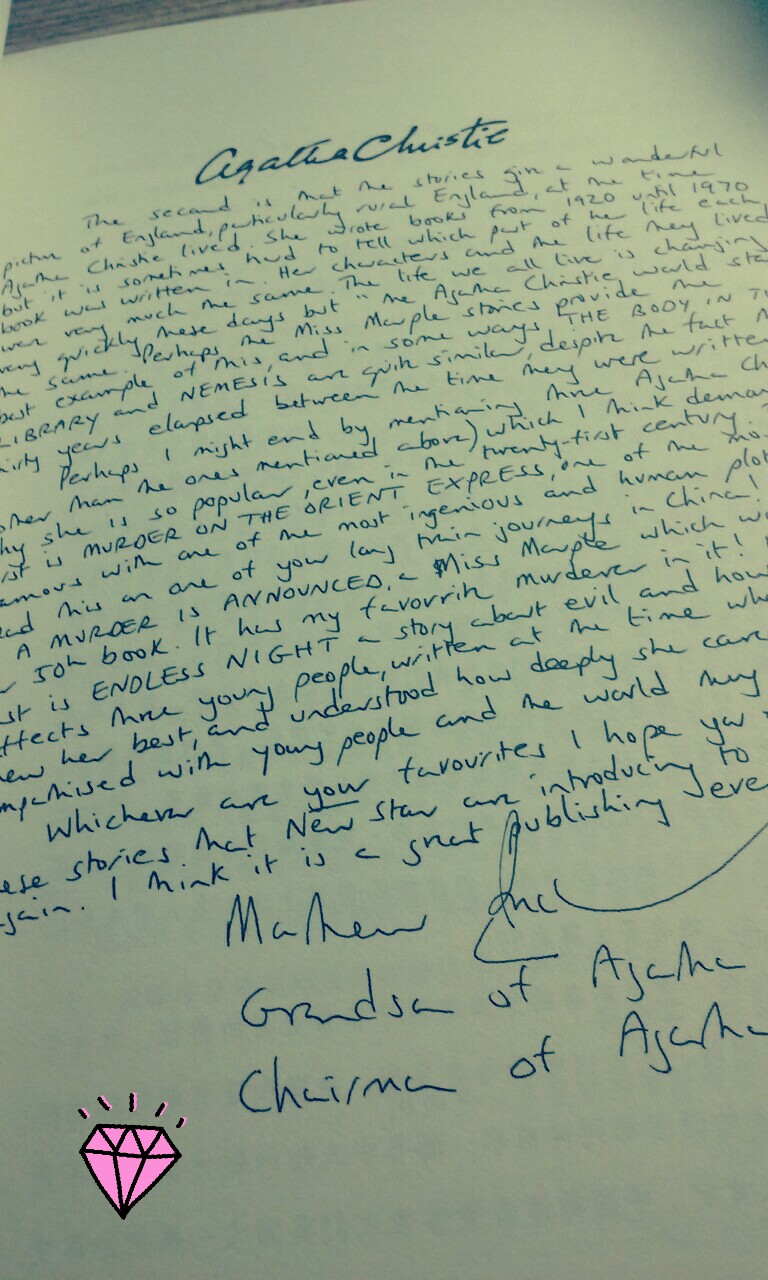 Agatha Christie
The second is that the stories give a wonderful
picture of England, particularly rural England, at the time
Agatha Christie lived. She wrote books from 1920 until 1970
but it is sometimes hard to tell which part of her life each
book was written in. Her characters and the life they lived
were very much the same. The life we all live is changing
very quickly these days but "the Agatha Christie world sta
the same. Perhaps the Miss Marple stories provide the
best example of this, and in some ways THE BODY IN T
LIBRARY and NEMESIS are quite similar, despite the fact
hirty years elapsed between the time they were written
Perhaps I might end by mentioning three Agatha Ch
other than the ones mentioned above) which I think demon
hy she is so popular, even in the twenty-first century.
rst is MURDER ON THE ORIENT EXPRESS, one of the mo
amous with one of the most ingenious and human plo
ead this on one of your long train journeys in China!
A MURDER IS ANNOUNCED, a Miss Marple which w
r 50th book. It has my favourite murderer in it!
st is ENDLESS NIGHT a story about evil and how
ffects three young people, written at the time wh
new her best, and understood how deeply she care
mpathised with young people and the world they
Whichever are your favourites I hope you
ese stories that New Star are introducing to
again. I think it is a great publishing eve
Mathew
Grandson of Agatha
Chairman of Agatha